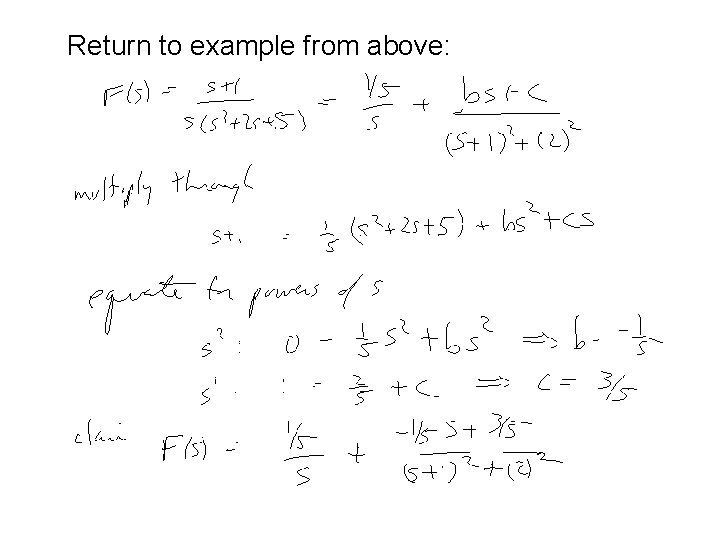 Return to example from above:
F(s) = s+1 / s(s²+2s+5) = 1/5 / s + bs+c / (s+1)²+(2)²
multiply through
s+1 = 1/5 (s²+2s+5) + bs²+cs
equate for powers of s
s²: 0 = 1/5 s² + bs² ⟹ b = -1/5
s¹: 1 = 2/5 + c ⟹ c = 3/5
claim F(s) = 1/5 / s + -1/5 s + 3/5 / (s+1)²+(2)²